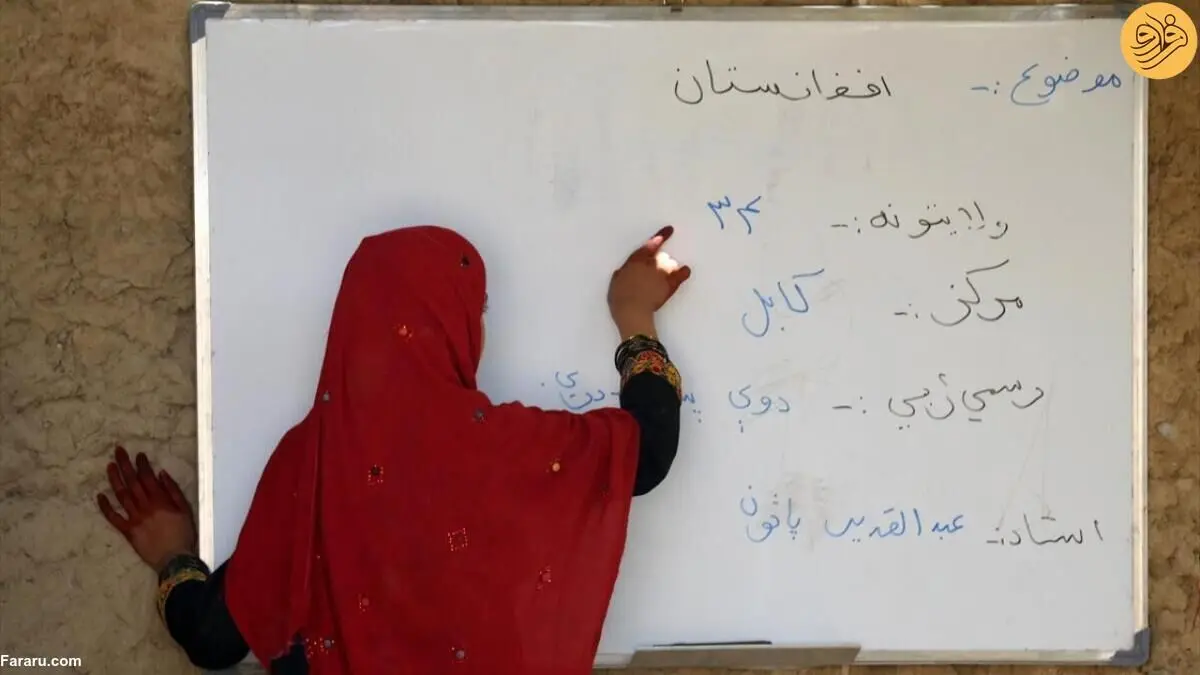 موضوع :- افغانستان
ولایتونه :- ۳۴
مرکز :- کابل
رسمي ژبي :- دوې
استاد :- عبدالقدیر پاڅون
فرارو
Fararu.com